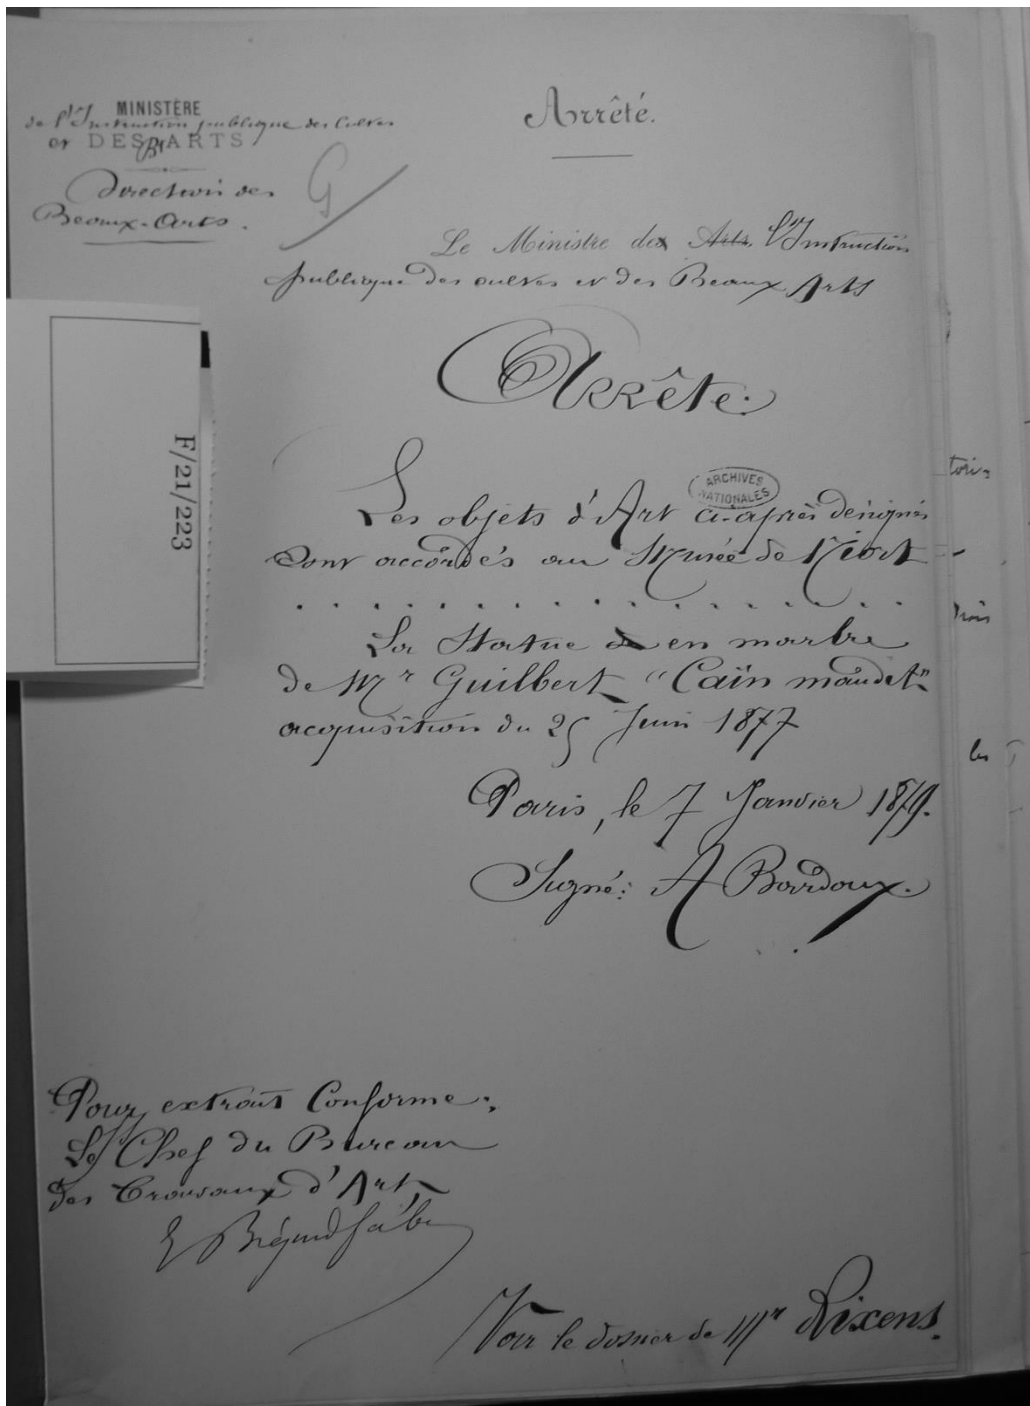 MINISTÈRE
de l'Instruction publique des Cultes
et DES Bx ARTS
Direction des
Beaux-Arts.
G
Arrêté.
Le Ministre des Arts. l'Instruction
publique des cultes et des Beaux Arts
Arrête:
ARCHIVES
NATIONALES
Les objets d'Art ci-après désignés
sont accordés au Musée de Niort
. . . . . . . . . . . . . . . . .
La Statue en marbre
de Mr Guilbert "Caïn maudit"
acquisition du 25 Juin 1877
Paris, le 7 Janvier 1879.
Signé: A Bardoux.
Pour extrait Conforme:
Le Chef du Bureau
des Travaux d'Art
Voir le dossier de Mr Rixens.
F/21/223
tori=
trois
les